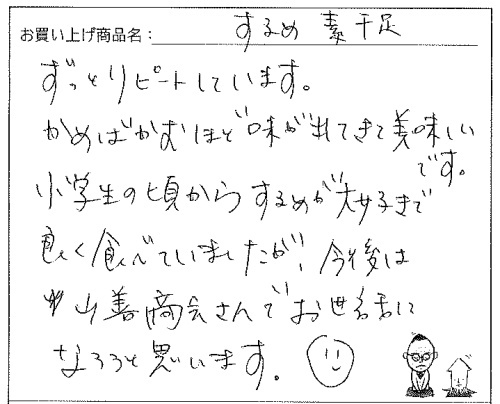 お買い上げ商品名： するめ 素干足
ずっとリピートしています。
かめばかむほど味が出てきて美味しい
です。
小学生の頃からするめが大好きで
良く食べていましたが、今後は
山善商会さんでお世話に
なろうと思います。